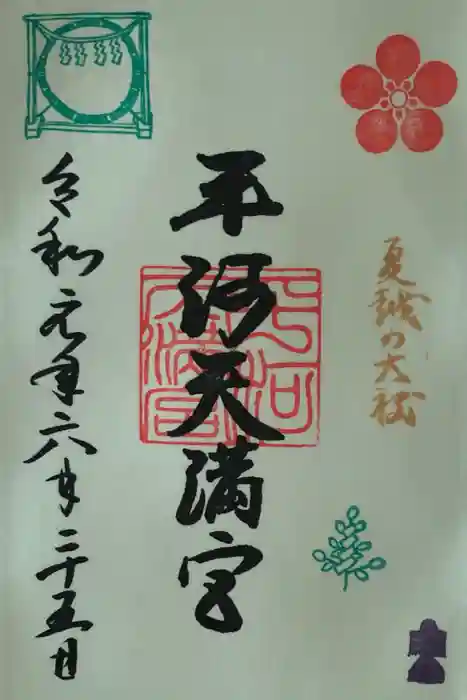 夏越の大祓
平河天満宮
令和元年六月二十五日